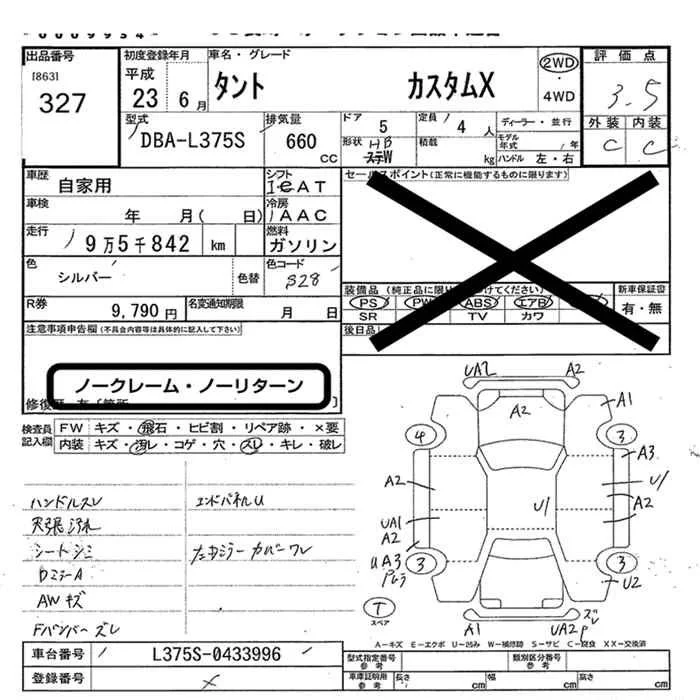 出品番号
[863]
327
初度登録年月
平成
23 6月
車名・グレード
タント カスタムX
2WD
・
4WD
評価点
3.5
外装 内装
C C
型式
DBA-L375S
排気量
660
cc
ドア
5
定員
4 人
形状 HB
積載
kg
ディーラー・並行
モデル年式 / 年
ハンドル 左・右
車歴
自家用
シフト
車検
年 月( 日)
冷房
AAC
走行
9万5千842 km
燃料
ガソリン
色
シルバー
色替
色コード
S28
R券
9,790 円
名変通知期限
月 日
セールスポイント(正常に機能するものに限ります)
装備品
PS PW ABS エアB
SR TV カワ
後日品
新車保証書
有・無
注意事項申告欄(不具合内容等は具体的に記入して下さい)
ノークレーム・ノーリターン
検査員
記入欄
FW キズ・飛石・ヒビ割・リペア跡・×要
内装 キズ・汚レ・コゲ・穴・スレ・キレ・破レ
ハンドルスレ
天張汚れ
シートシミ
DミラーA
AWキズ
Fバンパーズレ
エンドパネルU
左ミラーカバーワレ
UA2 A2
A2
A1
4 3
A3
A2 U/
A2
UA1
A2
U/
UA3
3 3
U2
T
スペア
A1 UA2
ズレ
A－キズ E－エクボ U－凹み W－補修跡 S－サビ C－腐食 XX－交換済
車台番号
L375S-0433996
登録番号
×
型式指定番号
参考
類別区分番号
参考
車庫証明用
参考
長さ cm
幅 cm
高さ cm